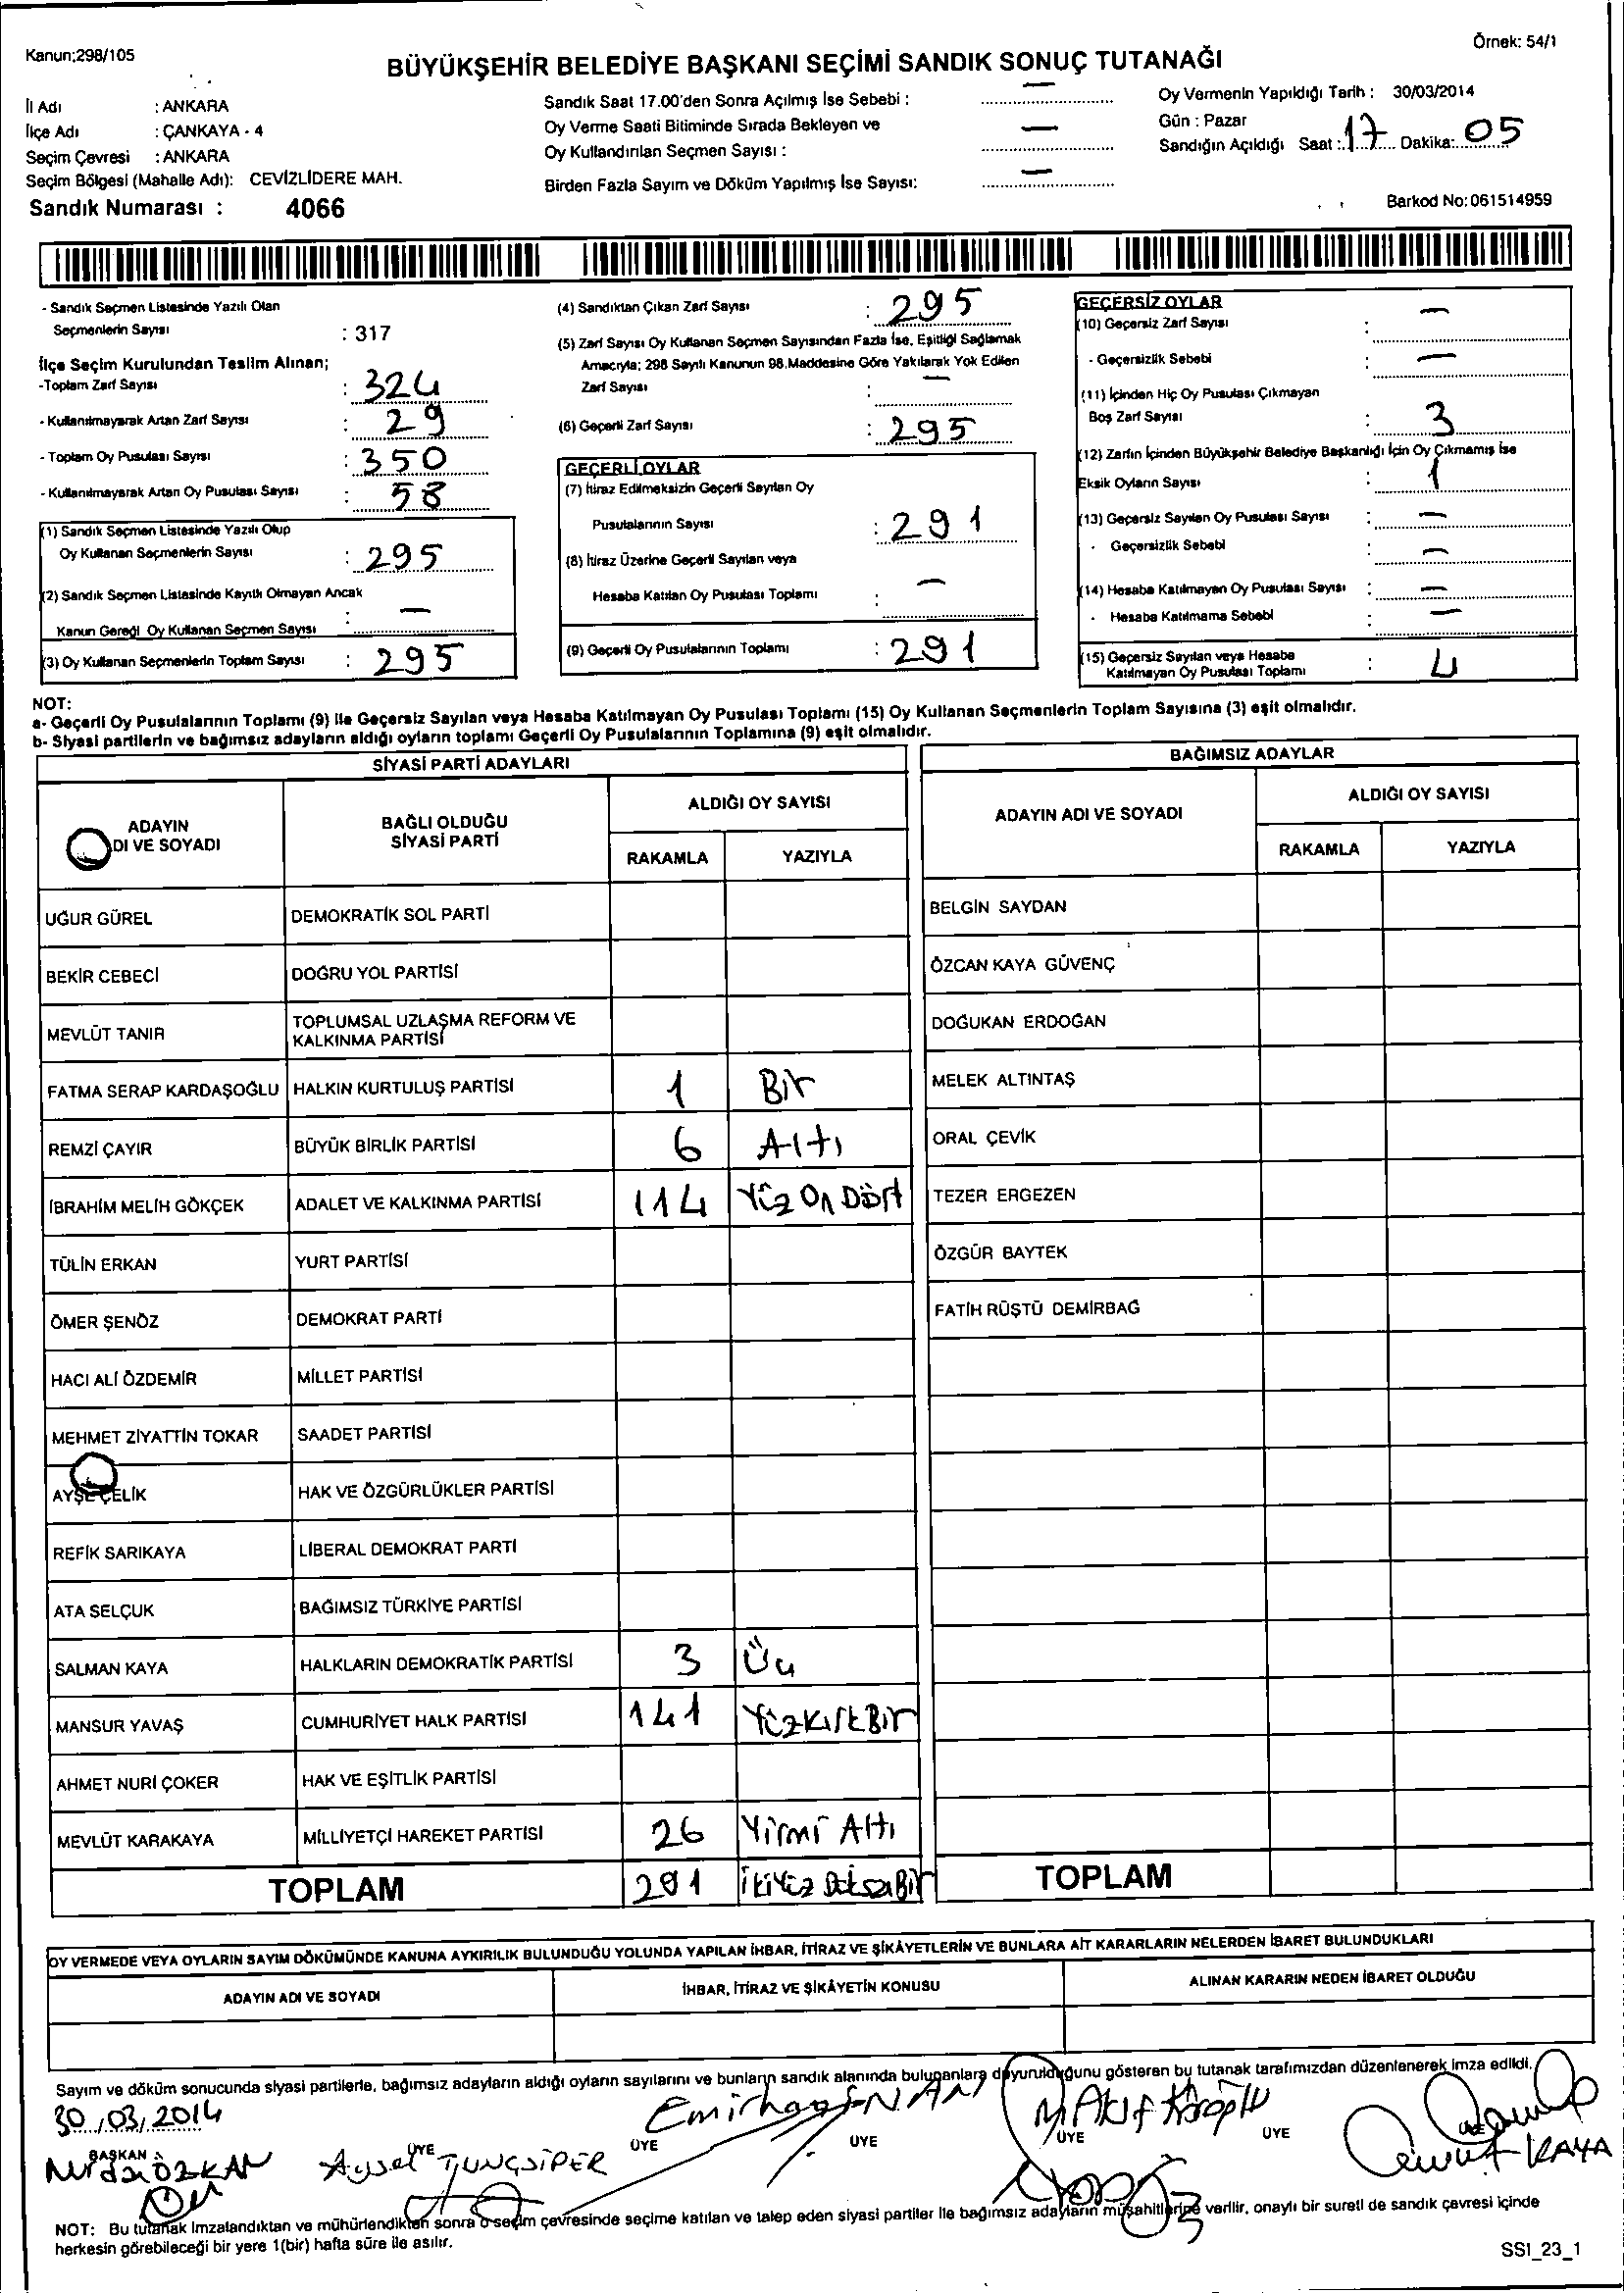 Kanun:298/105
Örnek: 54/1
BÜYÜKŞEHİR BELEDİYE BAŞKANI SEÇİMİ SANDIK SONUÇ TUTANAĞI
İl Adı : ANKARA
İlçe Adı : ÇANKAYA - 4
Seçim Çevresi : ANKARA
Seçim Bölgesi (Mahalle Adı): CEVİZLİDERE MAH.
Sandık Numarası : 4066
Sandık Saat 17.00'den Sonra Açılmış İse Sebebi : —
Oy Verme Saati Bitiminde Sırada Bekleyen ve
Oy Kullandırılan Seçmen Sayısı : —
Birden Fazla Sayım ve Döküm Yapılmış İse Sayısı: —
Oy Vermenin Yapıldığı Tarih : 30/03/2014
Gün : Pazar
Sandığın Açıldığı Saat : 17 Dakika: 05
Barkod No: 061514959
- Sandık Seçmen Listesinde Yazılı Olan
Seçmenlerin Sayısı : 317
İlçe Seçim Kurulundan Teslim Alınan;
-Toplam Zarf Sayısı : 324
- Kullanılmayarak Artan Zarf Sayısı : 29
- Toplam Oy Pusulası Sayısı : 350
- Kullanılmayarak Artan Oy Pusulası Sayısı : 58
(1) Sandık Seçmen Listesinde Yazılı Olup
Oy Kullanan Seçmenlerin Sayısı : 295
(2) Sandık Seçmen Listesinde Kayıtlı Olmayan Ancak
Kanun Gereği Oy Kullanan Seçmen Sayısı : —
(3) Oy Kullanan Seçmenlerin Toplam Sayısı : 295
(4) Sandıktan Çıkan Zarf Sayısı : 295
(5) Zarf Sayısı Oy Kullanan Seçmen Sayısından Fazla İse, Eşitliği Sağlamak
Amacıyla; 298 Sayılı Kanunun 98.Maddesine Göre Yakılarak Yok Edilen
Zarf Sayısı : —
(6) Geçerli Zarf Sayısı : 295
GEÇERLİ OYLAR
(7) İtiraz Edilmeksizin Geçerli Sayılan Oy
Pusulalarının Sayısı : 291
(8) İtiraz Üzerine Geçerli Sayılan veya
Hesaba Katılan Oy Pusulası Toplamı : —
(9) Geçerli Oy Pusulalarının Toplamı : 291
GEÇERSİZ OYLAR
(10) Geçersiz Zarf Sayısı : —
- Geçersizlik Sebebi : —
(11) İçinden Hiç Oy Pusulası Çıkmayan
Boş Zarf Sayısı : 3
(12) Zarfın İçinden Büyükşehir Belediye Başkanlığı İçin Oy Çıkmamış İse
Eksik Oyların Sayısı : 1
(13) Geçersiz Sayılan Oy Pusulası Sayısı : —
- Geçersizlik Sebebi : —
(14) Hesaba Katılmayan Oy Pusulası Sayısı : —
- Hesaba Katılmama Sebebi : —
(15) Geçersiz Sayılan veya Hesaba
Katılmayan Oy Pusulası Toplamı : 4
NOT:
a- Geçerli Oy Pusulalarının Toplamı (9) İle Geçersiz Sayılan veya Hesaba Katılmayan Oy Pusulası Toplamı (15) Oy Kullanan Seçmenlerin Toplam Sayısına (3) eşit olmalıdır.
b- Siyasi partilerin ve bağımsız adayların aldığı oyların toplamı Geçerli Oy Pusulalarının Toplamına (9) eşit olmalıdır.
SİYASİ PARTİ ADAYLARI
ADAYIN
DI VE SOYADI
BAĞLI OLDUĞU
SİYASİ PARTİ
ALDIĞI OY SAYISI
RAKAMLA YAZIYLA
UĞUR GÜREL DEMOKRATİK SOL PARTİ
BEKİR CEBECİ DOĞRU YOL PARTİSİ
MEVLÜT TANIR TOPLUMSAL UZLAŞMA REFORM VE
KALKINMA PARTİSİ
FATMA SERAP KARDAŞOĞLU HALKIN KURTULUŞ PARTİSİ 1 Bir
REMZİ ÇAYIR BÜYÜK BİRLİK PARTİSİ 6 Altı
İBRAHİM MELİH GÖKÇEK ADALET VE KALKINMA PARTİSİ 114 Yüz On Dört
TÜLİN ERKAN YURT PARTİSİ
ÖMER ŞENÖZ DEMOKRAT PARTİ
HACI ALİ ÖZDEMİR MİLLET PARTİSİ
MEHMET ZİYATTİN TOKAR SAADET PARTİSİ
AYŞE ÇELİK HAK VE ÖZGÜRLÜKLER PARTİSİ
REFİK SARIKAYA LİBERAL DEMOKRAT PARTİ
ATA SELÇUK BAĞIMSIZ TÜRKİYE PARTİSİ
SALMAN KAYA HALKLARIN DEMOKRATİK PARTİSİ 3 Üç
MANSUR YAVAŞ CUMHURİYET HALK PARTİSİ 141 YüzKırkBir
AHMET NURİ ÇOKER HAK VE EŞİTLİK PARTİSİ
MEVLÜT KARAKAYA MİLLİYETÇİ HAREKET PARTİSİ 26 Yirmi Altı
TOPLAM 291
BAĞIMSIZ ADAYLAR
ADAYIN ADI VE SOYADI
ALDIĞI OY SAYISI
RAKAMLA YAZIYLA
BELGİN SAYDAN
ÖZCAN KAYA GÜVENÇ
DOĞUKAN ERDOĞAN
MELEK ALTINTAŞ
ORAL ÇEVİK
TEZER ERGEZEN
ÖZGÜR BAYTEK
FATİH RÜŞTÜ DEMİRBAĞ
TOPLAM
OY VERMEDE VEYA OYLARIN SAYIM DÖKÜMÜNDE KANUNA AYKIRILIK BULUNDUĞU YOLUNDA YAPILAN İHBAR, İTİRAZ VE ŞİKÂYETLERİN VE BUNLARA AİT KARARLARIN NELERDEN İBARET BULUNDUKLARI
ADAYIN ADI VE SOYADI İHBAR, İTİRAZ VE ŞİKÂYETİN KONUSU ALINAN KARARIN NEDEN İBARET OLDUĞU
Sayım ve döküm sonucunda siyasi partilerle, bağımsız adayların aldığı oyların sayılarını ve bunların sandık alanında bulunanlara duyurulduğunu gösteren bu tutanak tarafımızdan düzenlenerek imza edildi.
30/03/2014
BAŞKAN ÜYE ÜYE ÜYE ÜYE ÜYE
ÖZKAN Aysel TUNÇSİPER Emirhan İNAN M AKİF KAYA
NOT: Bu tutanak İmzalandıktan ve mühürlendikten sonra o seçim çevresinde seçime katılan ve talep eden siyasi partiler ile bağımsız adayların müşahitlerine verilir, onaylı bir sureti de sandık çevresi içinde
herkesin görebileceği bir yere 1(bir) hafta süre ile asılır.
SSI_23_1